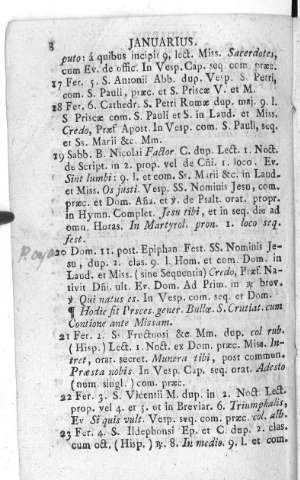 8 JANUARIUS.
puto: á quibus incipit 9, lect. Miss. Sacerdotes,
cum Ev. de offic. In Vesp. Cap. seq com. præc.
17 Fer. 5. S. Antonii Abb. dup. Vesp. S. Petri,
com. S. Pauli, præc. et S. Priscæ V. et M.
18 Fer. 6. Cathedr. S. Petri Romæ dup. maj. 9. l.
S Priscæ com. S. Pauli et S. in Laud. et Miss.
Credo, Præf Apost. In Vesp. com. S. Pauli, seq.
et Ss. Marii &c. Mm.
19 Sabb. B. Nicolai Factor C. dup. Lect. 1. Noct.
de Script. in 2. prop. vel de Cñi. 1. loco. Ev.
Sint lumbi: 9. l. et com. Ss. Marii &c. in Laud.
et Miss. Os justi. Vesp. SS. Nominis Jesu, com.
præc. et Dom. Aña. et ℣. de Psalt. orat. propr.
in Hymn. Complet. Jesu tibi, et in seq. die ad
omn. Horas. In Martyrol. pron. 1. loco seq
fest.
20 Dom. 11. post. Epiphan Fest. SS. Nominis Je-
su, dup. 2. clas. 9. l Hom. et com. Dom. in
Laud. et Miss. (sine Sequentia) Credo, Præf. Na-
tivit Dñi. ult. Ev. Dom. Ad Prim. in ℟ brev.
℣ Qui natus es. In Vesp. com. seq. et Dom.
¶ Hodie fit Proces. gener. Bullæ S. Cruciat. cum
Contione ante Missam.
21 Fer. 2. Ss. Fructuosi &c. Mm. dup. col rub.
(Hisp.) Lect. 1. Noct. ex Dom. præc. Miss. In-
tret, orat. secret. Munera tibi, post commun.
Præsta nobis In Vesp. Cap. seq. orat. Adesto
(num singl.) com. præc.
22 Fer. 3. S. Vicentii M. dup. in 2. Noct. Lect.
prop. vel 4. et 5. ut in Breviar. 6. Triumphalis,
Ev Si quis vult. Vesp. seq. com. præc. col. alb.
23 Fer 4. S. Ildephonsi Ep. et C. dup. 2. clas.
cum oct. (Hisp.) ℟. 8. In medio. 9. l. et com.